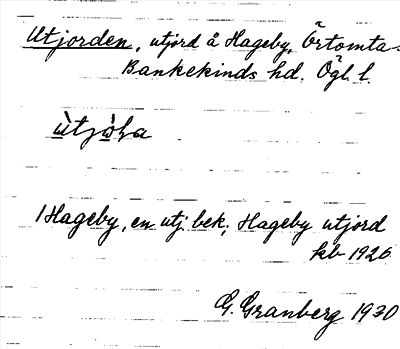 Utjorden, utjord å Hageby, Örtomta-
Bankekinds hd. Ögl. l.
1 Hageby, en utj. bek; Hageby utjord
kb 1926
G. Granberg 1930